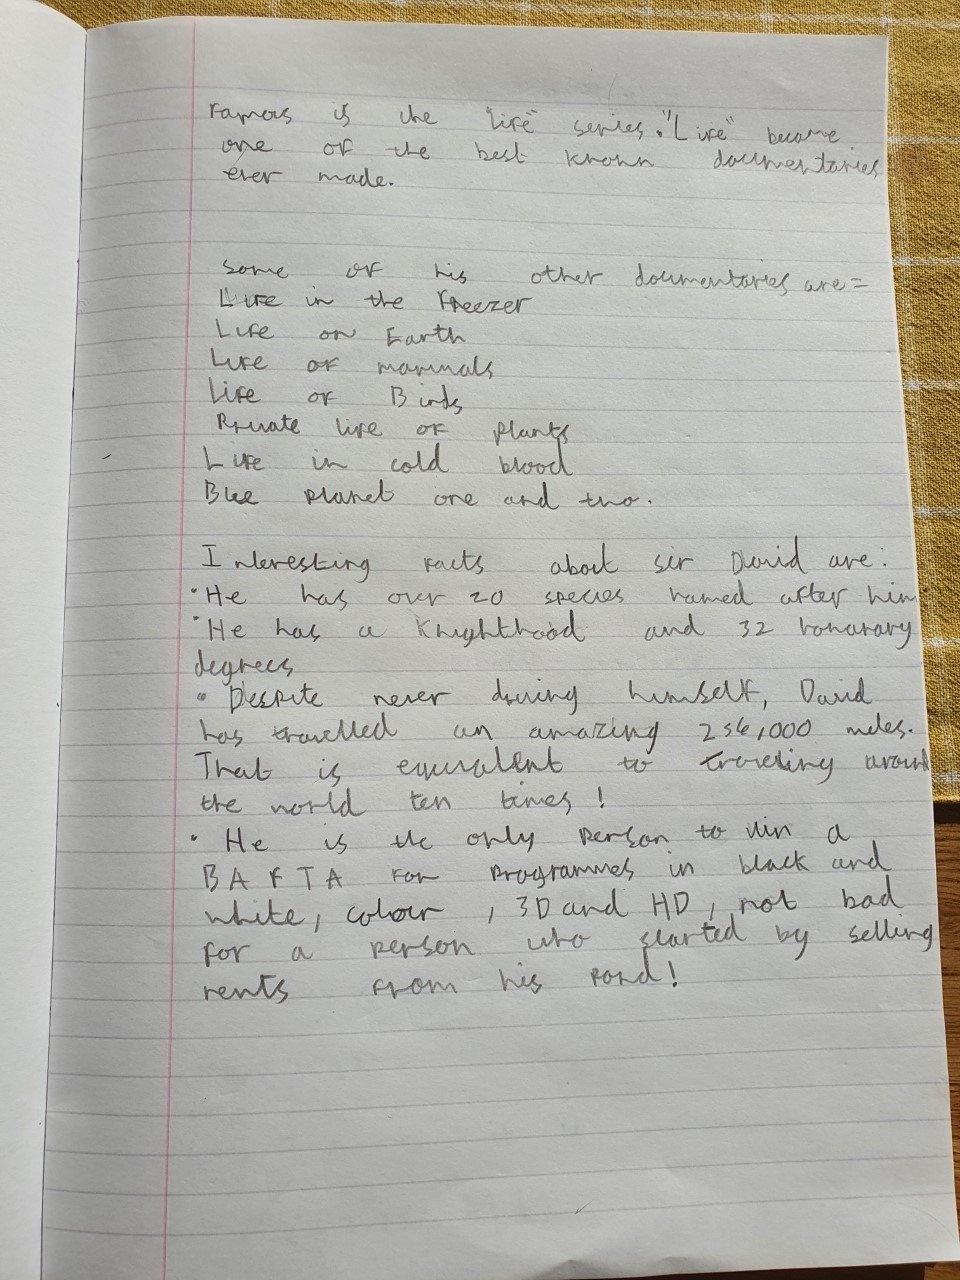 Famous is the "Life" series. "Life" became
one of the best known documentaries
ever made.
Some of his other documentaries are =
Life in the Freezer
Life on Earth
Life of mammals
Life of Birds
Private life of plants
Life in cold blood
Blue planet one and two.
Interesting facts about sir David are:
• He has over 20 species named after him
• He has a Knighthood and 32 honarary
degrees
• Despite never driving himself, David
has travelled an amazing 256,000 miles.
That is equivalent to traveling around
the world ten times!
• He is the only person to win a
BAFTA for programmes in black and
white, colour, 3D and HD, not bad
for a person who started by selling
nents from his pond!